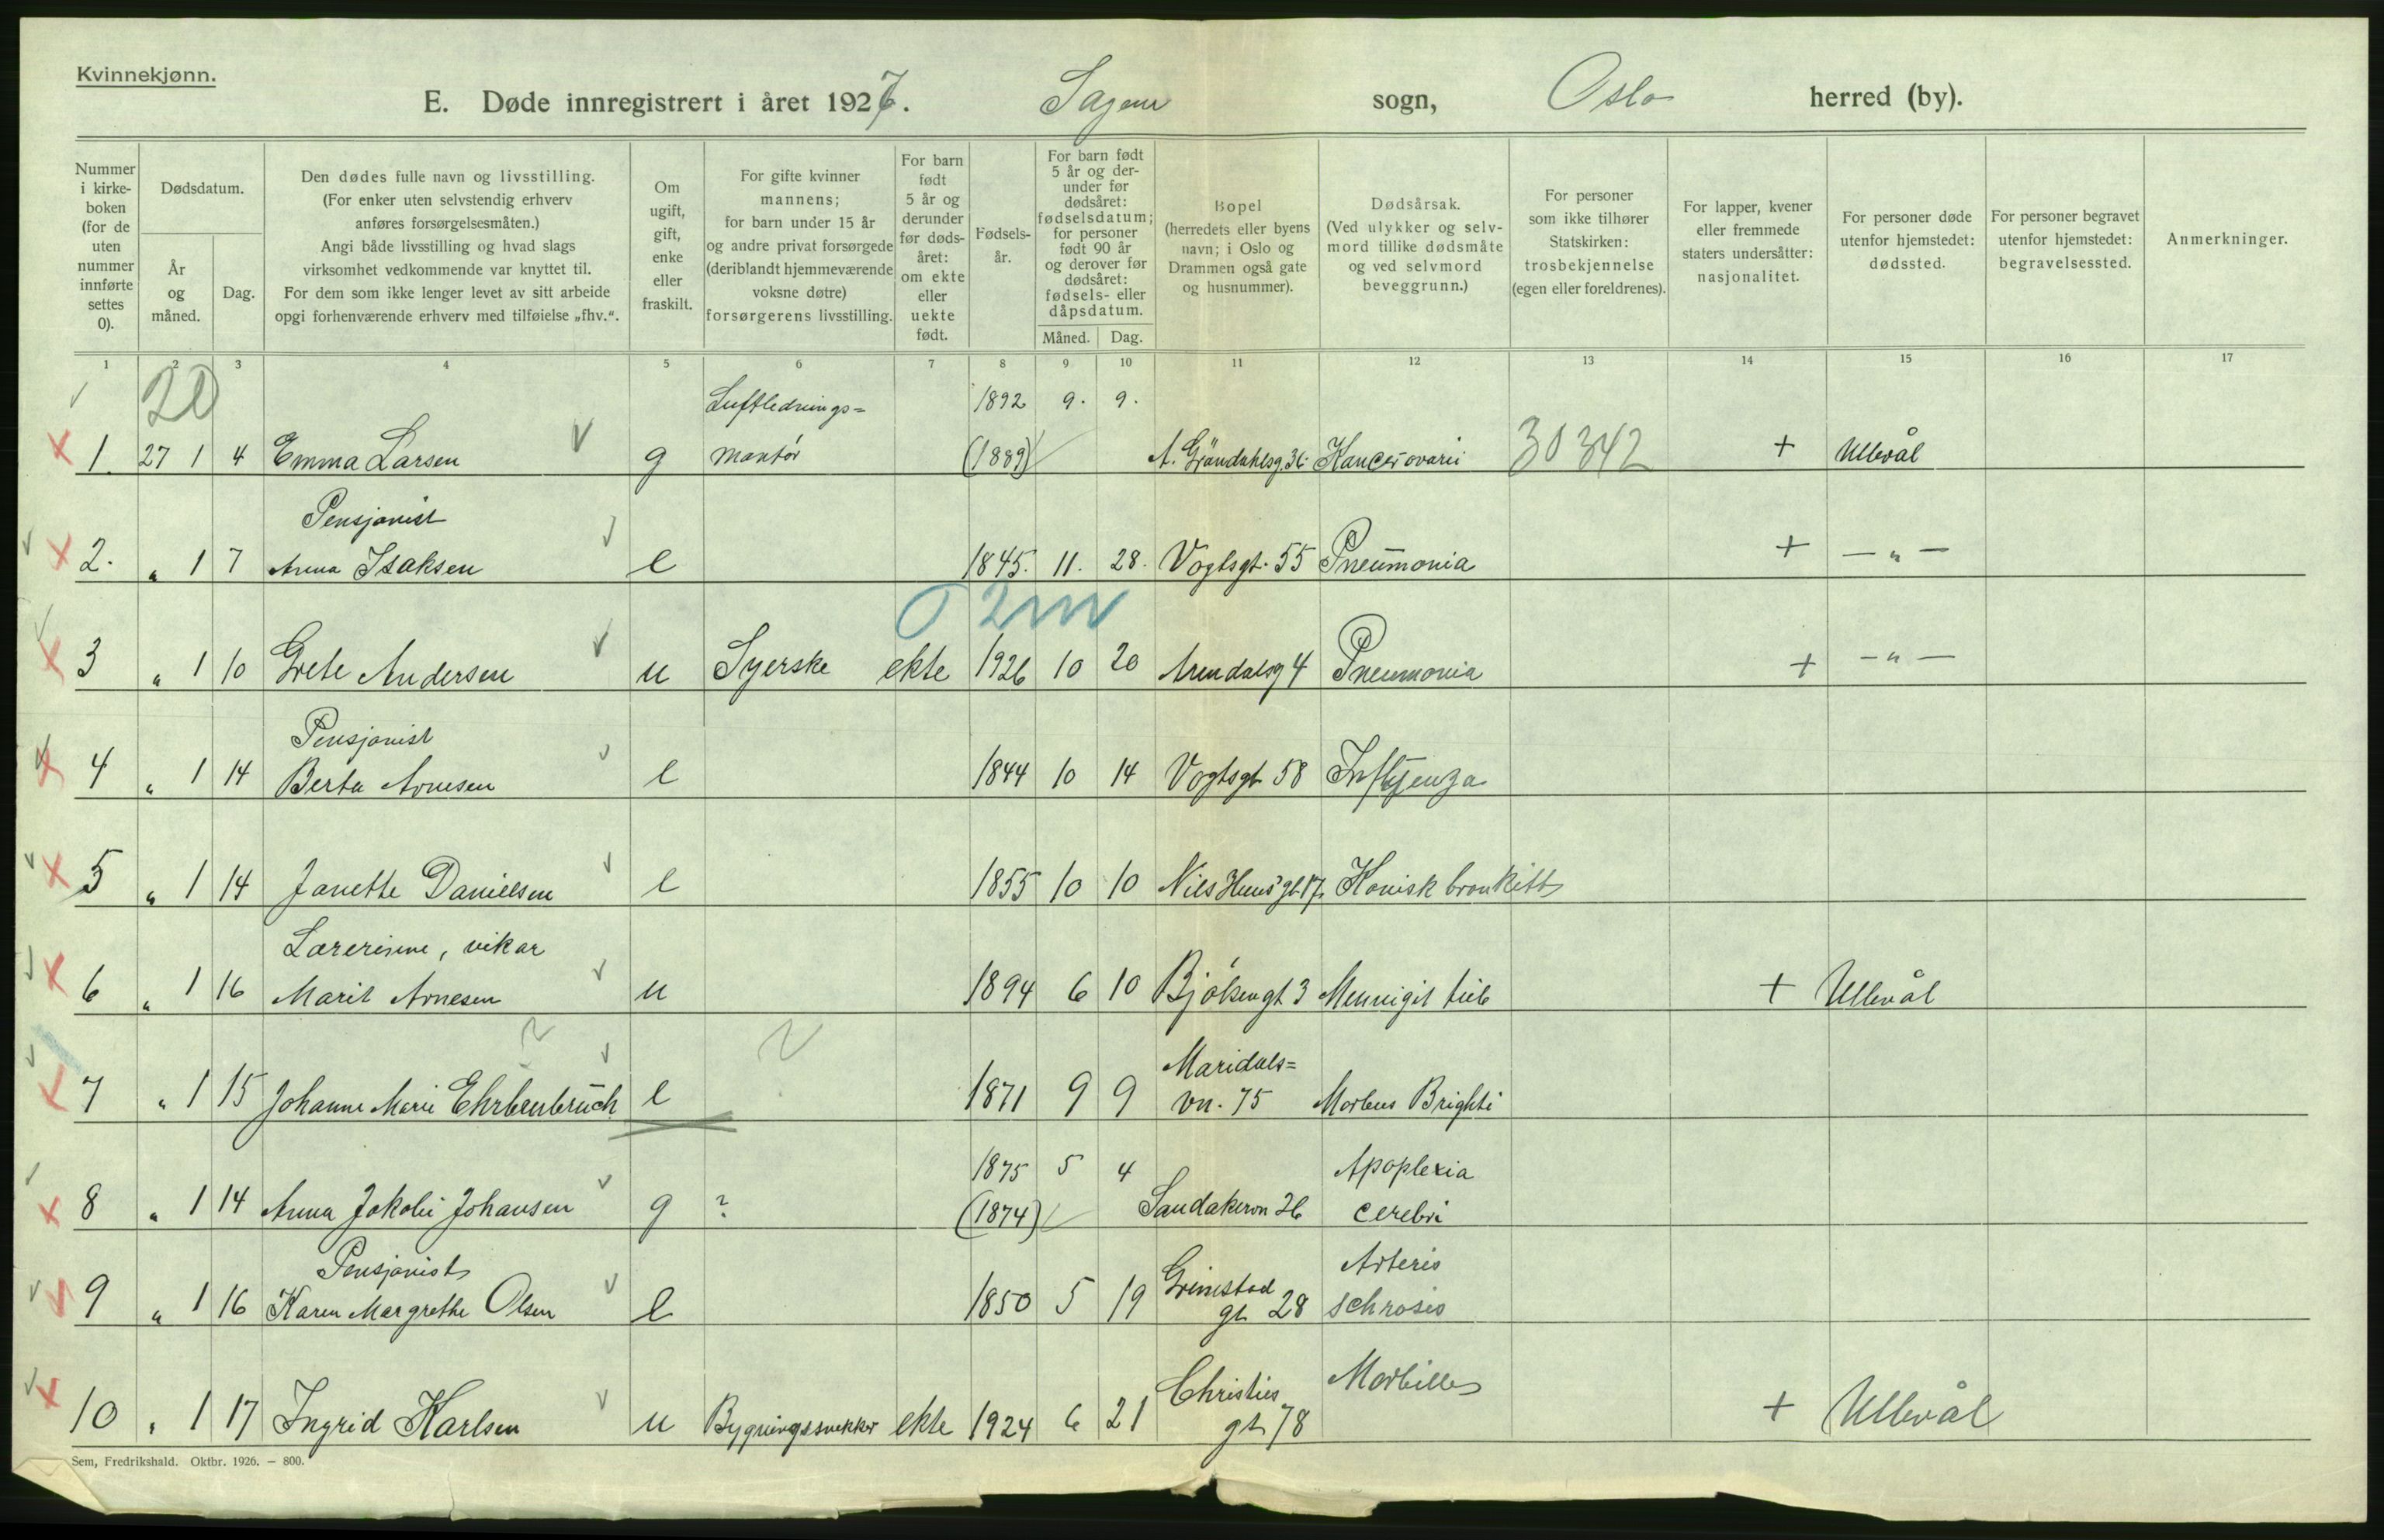 Kvinnekjønn.
E. Døde innregistrert i året 1927. Sagene sogn, Oslo herred (by).
Nummer i kirkeboken (for de uten nummer innførte settes 0).
Dødsdatum.
År og måned.
Dag.
Den dødes fulle navn og livsstilling.
(For enker uten selvstendig erhverv
anføres forsørgelsesmåten.)
Angi både livsstilling og hvad slags
virksomhet vedkommende var knyttet til.
For dem som ikke lenger levet av sitt arbeide
opgi forhenværende erhverv med tilføielse „fhv.“.
Om
ugift,
gift,
enke
eller
fraskilt.
For gifte kvinner
mannens;
for barn under 15 år
og andre privat forsørgede
(deriblandt hjemmeværende
voksne døtre)
forsørgerens livsstilling.
For barn
født
5 år og
derunder
før døds-
året:
om ekte
eller
uekte
født.
Fødsels-
år.
For barn født
5 år og der-
under før
dødsåret:
fødselsdatum;
for personer
født 90 år
og derover før
dødsåret:
fødsels- eller
dåpsdatum.
Måned. Dag.
Bopel
(herredets eller byens
navn; i Oslo og
Drammen også gate
og husnummer).
Dødsårsak.
(Ved ulykker og selv-
mord tillike dødsmåte
og ved selvmord
beveggrunn.)
For personer
som ikke tilhører
Statskirken:
trosbekjennelse
(egen eller foreldrenes).
For lapper, kvener
eller fremmede
staters undersåtter:
nasjonalitet.
For personer døde
utenfor hjemstedet:
dødssted.
For personer begravet
utenfor hjemstedet:
begravelsessted.
Anmerkninger.
1 2 3 4 5 6 7 8 9 10 11 12 13 14 15 16 17
20 Luftlednings= 1892 9. 9.
1. 27 1 4 Emma Larsen g montør (1889) A. Gröndahlsg. 36 Kancer ovarii 30342 + Ullevål
Pensjonist
2. „ 1 7 Anna Isaksen e 1845. 11. 28. Vogtsgt. 55 Pneumonia + — „ —
3 „ 1 10 Grete Andersen u Syerske ekte 1926 10 20 Arendalsg 4 Pneumonia + — „ —
Pensjonist
4 „ 1 14 Berta Arnesen e 1844 10 14 Vogtsgt 58 Influenza
5 „ 1 14 Janette Danielsen e 1855 10 10 Nils Huus' gt 17 Kronisk bronkitt
Lærerinne, vikar
6 „ 1 16 Marit Arnesen u 1894 6 10 Bjölsengt 3 Mennigit tub + Ullevål
Maridals=
7 „ 1 15 Johanne Marie Ehrbenbruch e 1871 9 9 vn. 75 Morbus Brighti
1875 5 4 Apoplexia
8 „ 1 14 Anna Jakobie Johansen g ? (1874) Sandakervn 26 cerebri
Pensjonist Arteris
9 „ 1 16 Karen Margrethe Olsen e 1850 5 19 Grimstad gt 28 schrosis
Christies Morbilles
10 „ 1 17 Ingrid Karlsen u Bygningssnekker ekte 1924 6 21 gt 78 + Ullevål
Sem, Fredrikshald. Oktbr. 1926. — 800.